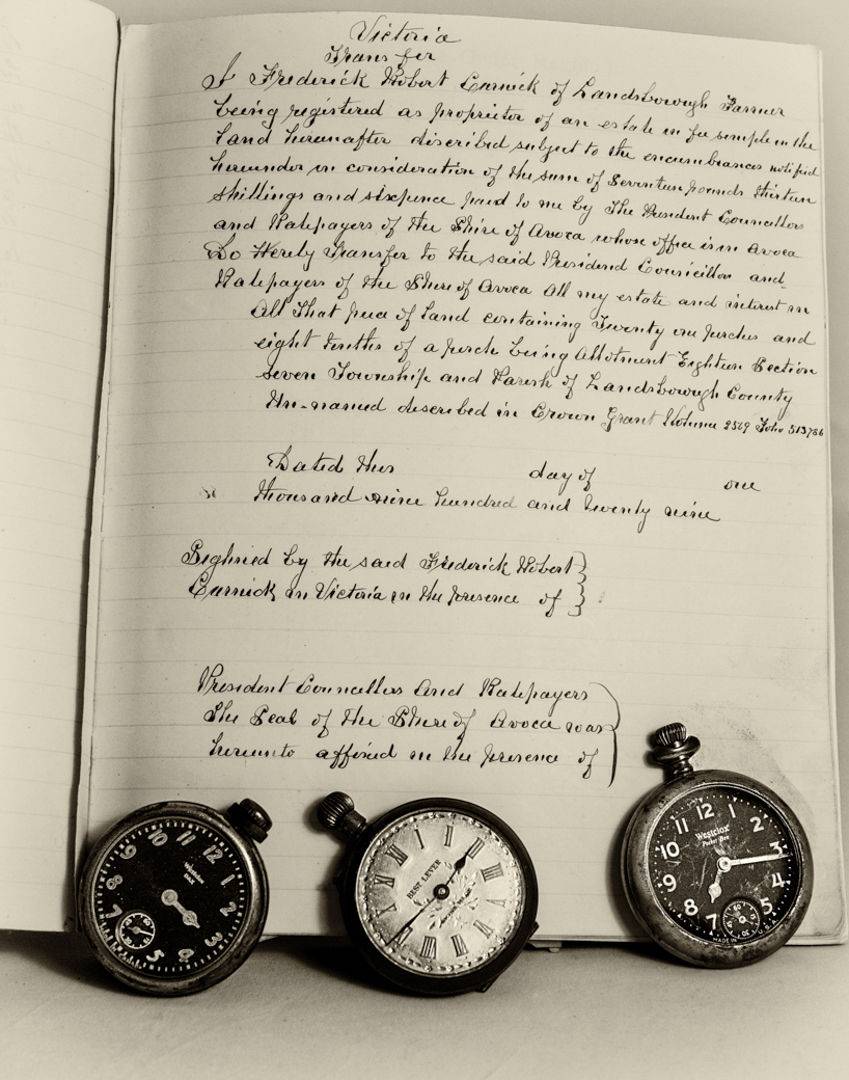 Victoria
Transfer
I Frederick Robert Carnick of Landsborough Farmer
being registered as proprietor of an estate in fee simple in the
land hereinafter discribed subject to the encumbrances notified
hereunder in consideration of the sum of Seventeen pounds thirteen
shillings and sixpence paid to me by The President Councillors
and Ratepayers of the Shire of Avoca whose office is in Avoca
Do Hereby Transfer to the said President Councillor and
Ratepayers of the Shire of Avoca All my estate and interest in
All That piece of Land containing Twenty one perches and
eight tenths of a perch being Allotment Eighteen Section
seven Township and Parish of Landsborough County
Un-named described in Crown Grant Volume 2569 Folio 513786
Dated this day of one
thousand nine hundred and twenty nine
Sighned by the said Frederick Robert
Carnick in Victoria in the presence of
President Councillors and Ratepayers
The Seal of the Shire of Avoca was
hereunto affixed in the presence of
10 11 12 1 2 3 4 5 7 8
Westclox
BEST LEVER
11 12 1 2 3 4 5 7 8 9 10
Westclox
Pocket Ben
60
MADE IN U.S.A.